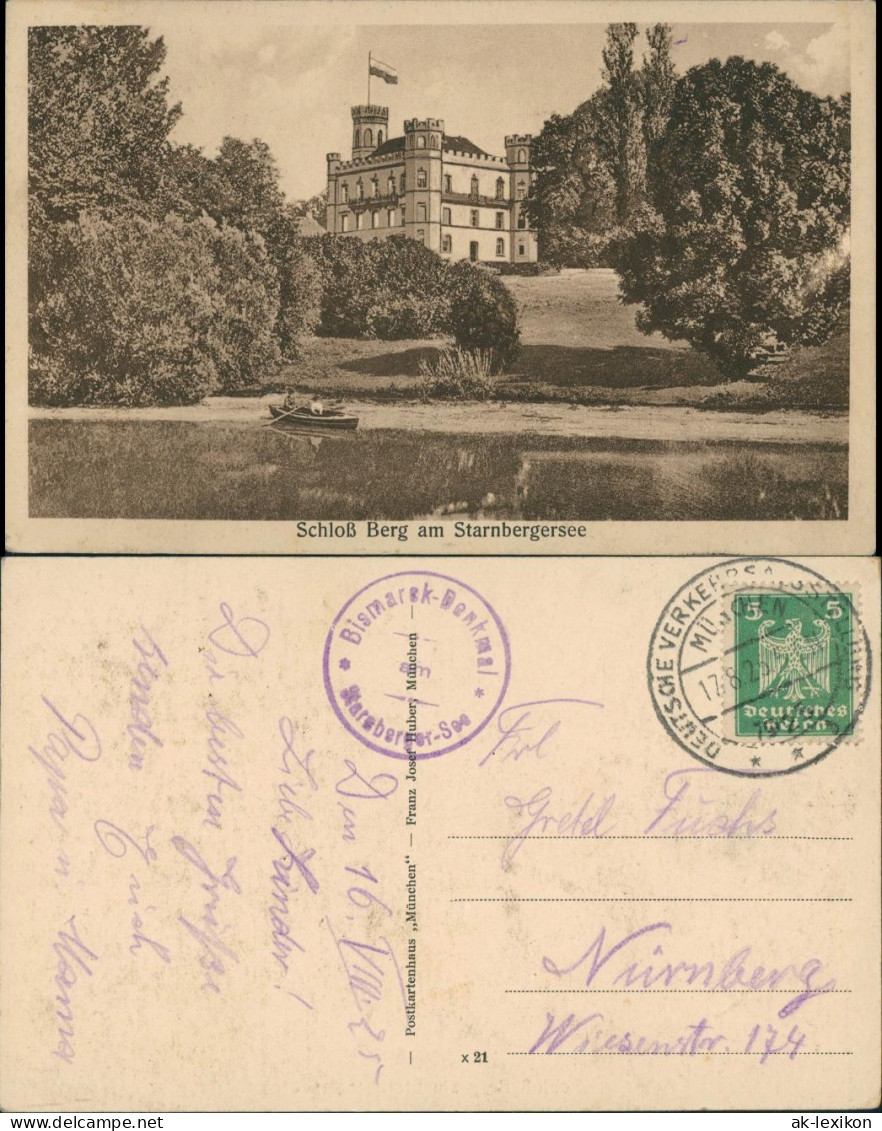 Schloß Berg am Starnbergersee
Bismarck-Denkmal
am
Starnberger-See
DEUTSCHE VERKEHRSAUSSTELLUNG
MÜNCHEN
17.8.25
5 5
Deutsches
Reich
Den 16. VIII. 25
Liebe Kinder!
Die besten Grüße
senden Euch
Papa u. Mama
— Postkartenhaus „München" — Franz Josef Huber, München —
Frl
Gretel Fuchs
Nürnberg
Wiesenstr. 174
x 21
ak-lexikon